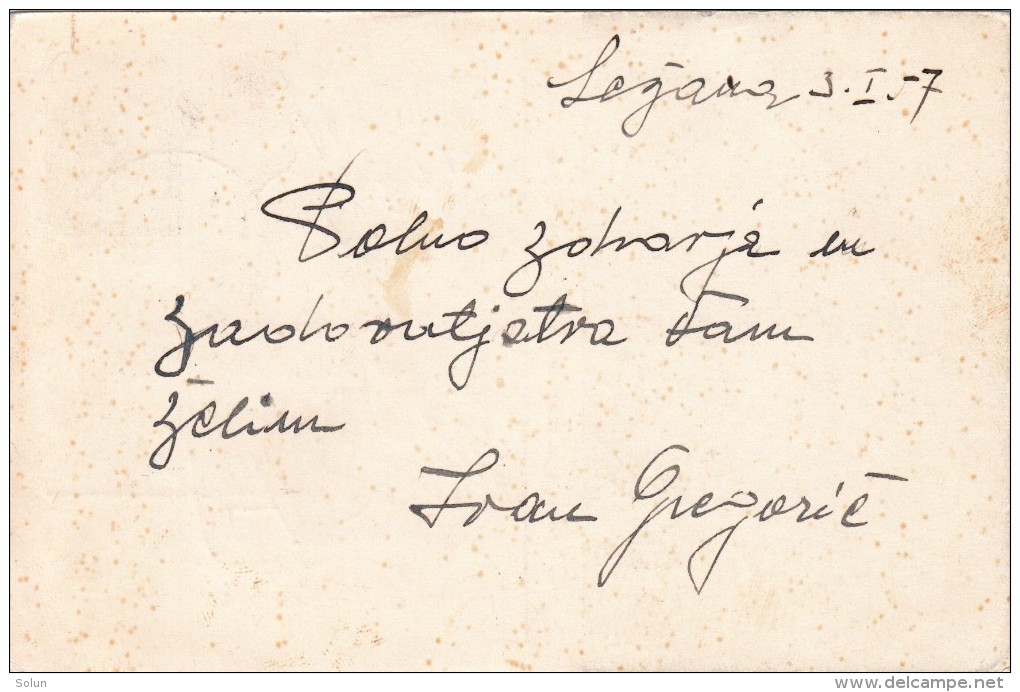 Sežana 3. I. 57
Polno zdravja in
zadovoljstva Vam
želim
Ivan Gregorič
Solun
delcampe.net